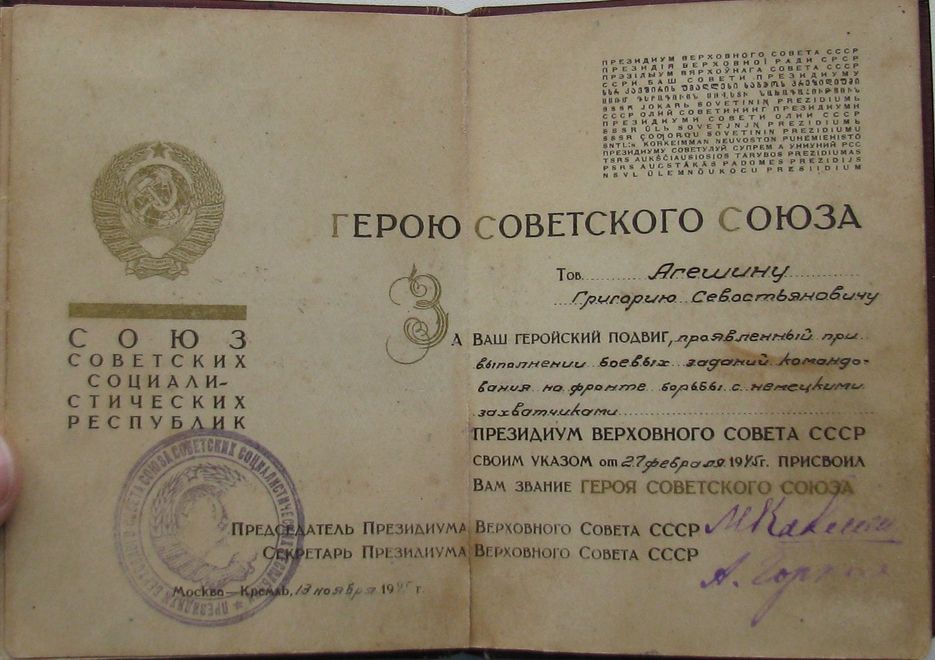 СОЮЗ
СОВЕТСКИХ
СОЦИАЛИ-
СТИЧЕСКИХ
РЕСПУБЛИК
ПРЕЗИДИУМ ВЕРХОВНОГО СОВЕТА СССР
ПРЕЗИДІЯ ВЕРХОВНОЇ РАДИ СРСР
ПРЭЗІДЫУМ ВЯРХОЎНАГА СОВЕТА СССР
ССРИ БАШ СОВЕТИ ПРЕЗИДИУМУ
SSSR JOKARЬ SOVETININ PREZIDIUMЬ
СССР ОЛИЙ СОВЕТИНИНГ ПРЕЗИДИУМИ
ПРЕЗИДИУМИ СОВЕТИ ОЛИИ СССР
SSSR
SSSR ÇOQORQU SOVETININ PREZIDIUMU
SNTL:n KORKEIMMAN NEUVOSTON PUHEMIEHISTÖ
ПРЕЗИДИУМУ СОВЕТУЛУЙ СУПРЕМ А УНИУНИЙ РСС
TSRS AUKŠČIAUSIOSIOS TARYBOS PREZIDIUMAS
PSRS AUGSTĀKĀS PADOMES PREZIDIJS
NSVL ÜLEMNÕUKOGU PRESIIDIUM
ГЕРОЮ СОВЕТСКОГО СОЮЗА
Тов. Агешину
Григорию Севастьяновичу
ЗА ВАШ ГЕРОЙСКИЙ ПОДВИГ, проявленный при
выполнении боевых заданий командо-
вания на фронте борьбы с немецкими
захватчиками
ПРЕЗИДИУМ ВЕРХОВНОГО СОВЕТА СССР
СВОИМ УКАЗОМ от 27 февраля 1945г. ПРИСВОИЛ
ВАМ ЗВАНИЕ ГЕРОЯ СОВЕТСКОГО СОЮЗА
ПРЕДСЕДАТЕЛЬ ПРЕЗИДИУМА ВЕРХОВНОГО СОВЕТА СССР М Калинин
СЕКРЕТАРЬ ПРЕЗИДИУМА ВЕРХОВНОГО СОВЕТА СССР
А. Горкин
Москва–Кремль, 13 ноября 1945 г.
ПРЕЗИДИУМ ВЕРХОВНОГО СОВЕТА СОЮЗА СОВЕТСКИХ СОЦИАЛИСТИЧЕСКИХ